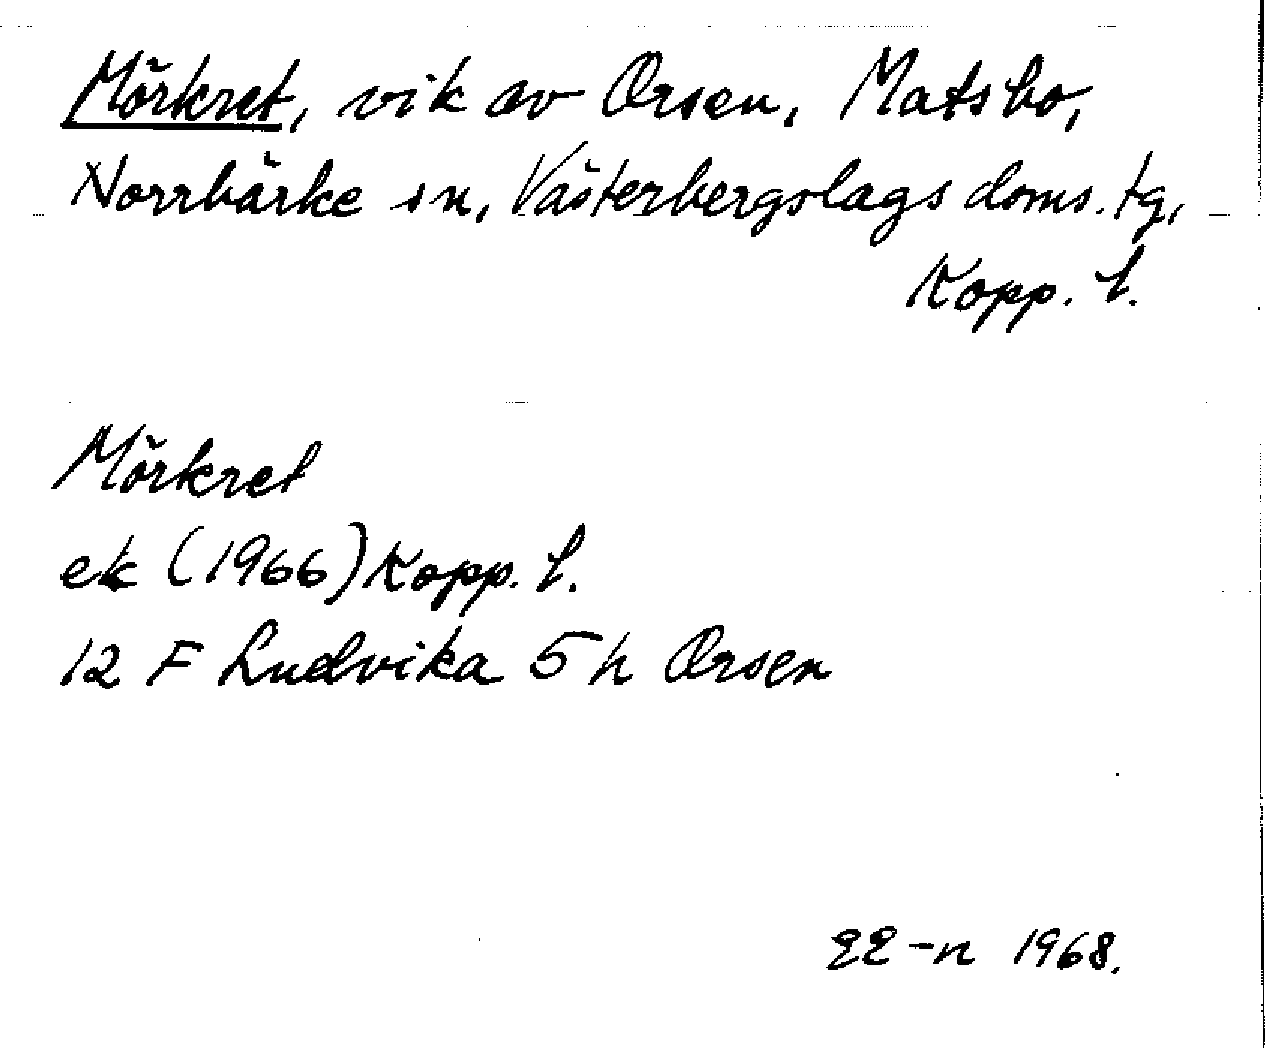 Mörkret, vik av Orsen, Matsbo,
Norrbärke sn, Västerbergslags doms. tg,
Kopp. l.
Mörkret
ek (1966) Kopp. l.
12 F Ludvika 5 h Orsen
EE-n 1968.